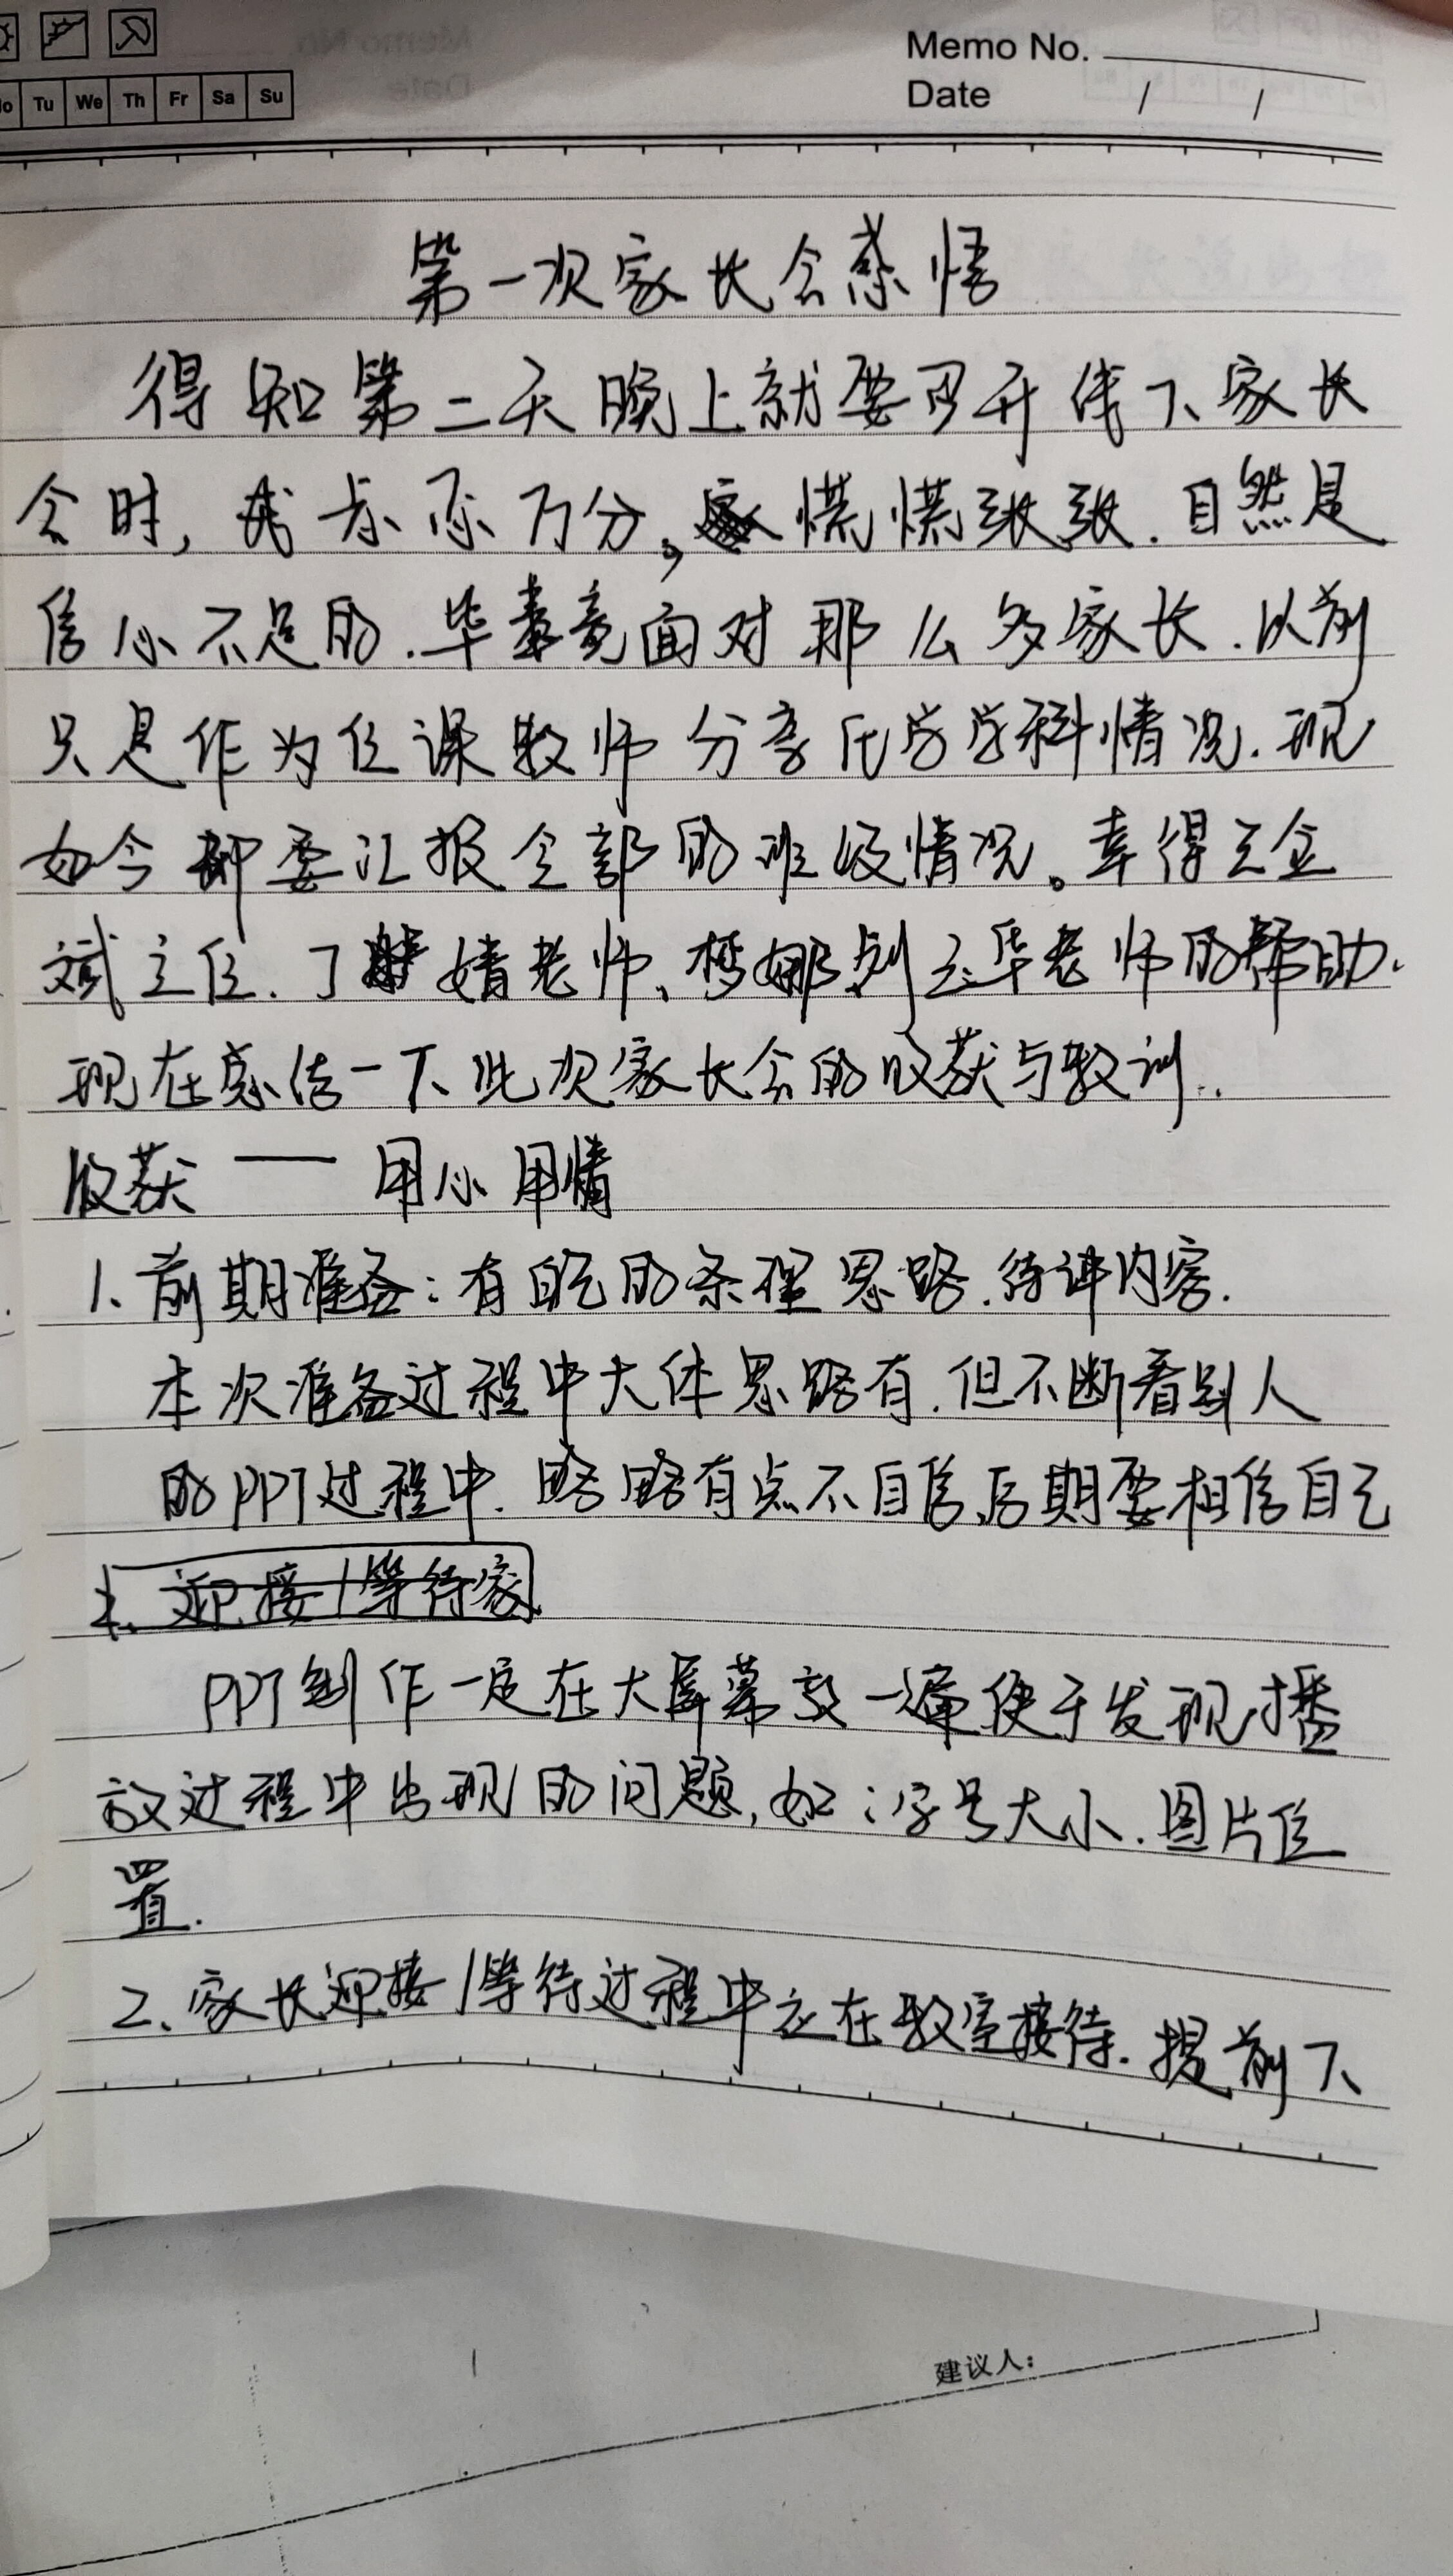 Memo No.
Date / /
Tu We Th Fr Sa Su
第一次家长会感悟
得知第二天晚上就要召开线下家长
会时，我忐忑万分，慌慌张张．自然是
信心不足的．毕竟面对那么多家长．以前
只是作为任课教师分享化学学科情况．现
如今却要汇报全部的班级情况。幸得王金
斌主任、丁婧老师、梦娜、刘云华老师的帮助．
现在总结一下此次家长会的收获与教训．
收获 —— 用心用情
1、前期准备：有自己的条理思路．待讲内容．
本次准备过程中大体思路有．但不断看别人
的PPT过程中．略略有点不自信，后期要相信自己
2、迎接/等待家
PPT制作一定在大屏幕放一遍便于发现播
放过程中出现的问题，如：字号大小．图片位
置．
2、家长迎接/等待过程中应在教室接待．提前下
建议人：